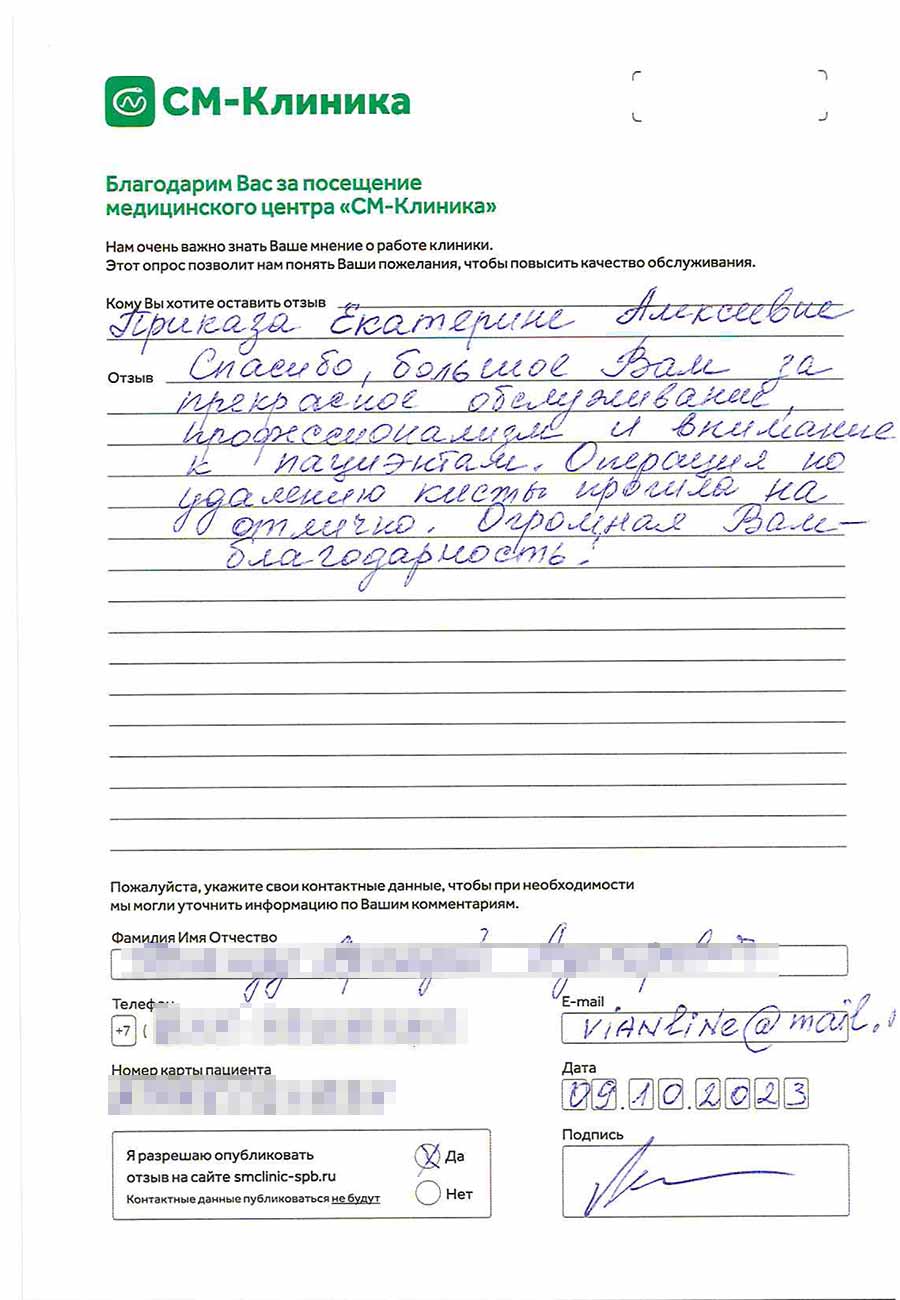 СМ-Клиника
Благодарим Вас за посещение
медицинского центра «СМ-Клиника»
Нам очень важно знать Ваше мнение о работе клиники.
Этот опрос позволит нам понять Ваши пожелания, чтобы повысить качество обслуживания.
Кому Вы хотите оставить отзыв
Приказа Екатерине Алексеевне
Отзыв Спасибо, большое Вам за
прекрасное обслуживание,
профессионализм и внимание
к пациэнтам. Операция по
удалению кисты прошла на
отлично. Огромная Вам-
благодарность!
Пожалуйста, укажите свои контактные данные, чтобы при необходимости
мы могли уточнить информацию по Вашим комментариям.
Фамилия Имя Отчество
Телефон
+7 (
E-mail
vianline@mail.
Номер карты пациента
Дата
09.10.2023
Я разрешаю опубликовать
отзыв на сайте smclinic-spb.ru
Контактные данные публиковаться не будут
Да
Нет
Подпись